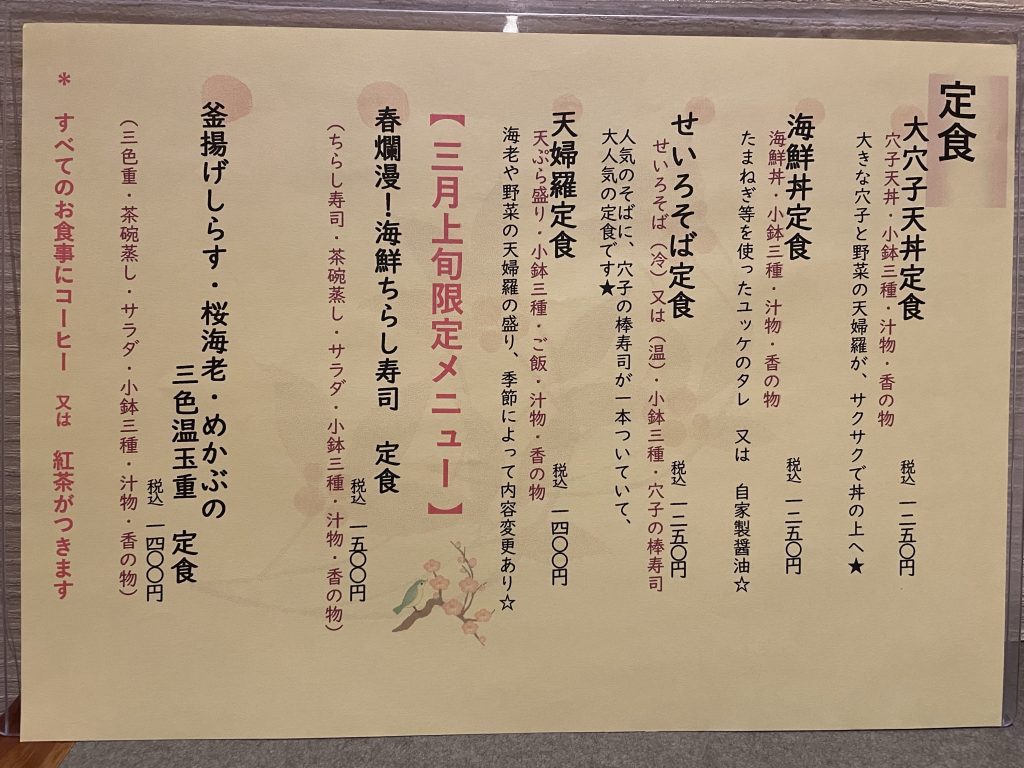 定食
大穴子天丼定食
穴子天丼・小鉢三種・汁物・香の物
税込 一二五〇円
大きな穴子と野菜の天婦羅が、サクサクで丼の上へ★
海鮮丼定食
海鮮丼・小鉢三種・汁物・香の物
税込 一二五〇円
たまねぎ等を使ったユッケのタレ 又は 自家製醤油☆
せいろそば定食
せいろそば（冷）又は（温）・小鉢三種・穴子の棒寿司
税込 一二五〇円
人気のそばに、穴子の棒寿司が一本ついていて、
大人気の定食です★
天婦羅定食
天ぷら盛り・小鉢三種・ご飯・汁物・香の物
税込 一四〇〇円
海老や野菜の天婦羅の盛り、季節によって内容変更あり☆
【三月上旬限定メニュー】
春爛漫！海鮮ちらし寿司 定食
税込 一五〇〇円
（ちらし寿司・茶碗蒸し・サラダ・小鉢三種・汁物・香の物）
釜揚げしらす・桜海老・めかぶの
三色温玉重 定食
税込 一四〇〇円
（三色重・茶碗蒸し・サラダ・小鉢三種・汁物・香の物）
＊ すべてのお食事にコーヒー 又は 紅茶がつきます